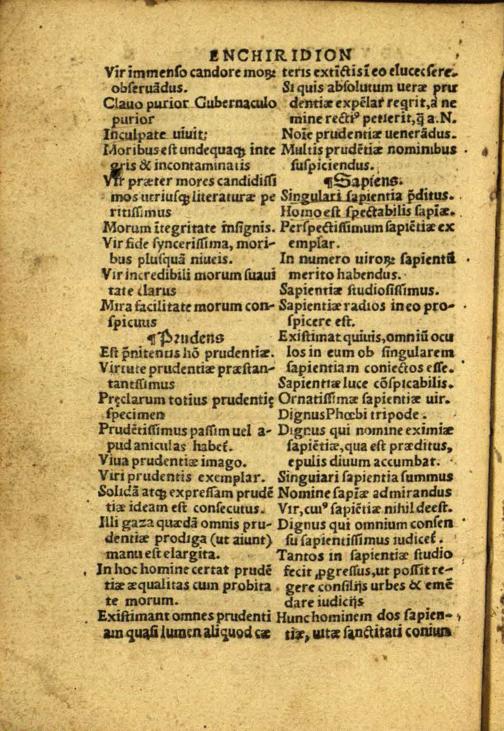 ENCHIRIDION
Vir immenso candore moꝝ
obseruãdus.
Clauo purior Gubernaculo
purior
Inculpate uiuit;
Moribus est undequaqꝫ inte
gris & incontaminatis
Vir præter mores candidissi
mos utriusqꝫ literaturæ pe
ritissimus
Morum ĩtegritate ĩnsignis.
Vir fide syncerissima, mori-
bus plusquã niueis.
Vir incredibili morum suaui
tate clarus
Mira facilitate morum con-
spicuus
¶Prudens
Est p̃nitentis hõ prudentiæ.
Virtute prudentiæ præstan-
tantissimus
Pręclarum totius prudentię
specimen
Prudẽtissimus passim uel a-
pud aniculas habet̃.
Viua prudentiæ imago.
Viri prudentis exemplar.
Solidã atqꝫ expressam prudẽ
tiæ ideam est consecutus.
Illi gaza quædã omnis pru-
dentiæ prodiga (ut aiunt)
manu est elargita.
In hoc homine certat prudẽ
tiæ æqualitas cum probita
te morum.
Existimant omnes prudenti
am quasi lumen aliquod cæ
teris extĩctis ĩ eo elucescere.
Si quis absolutum ueræ pru
dentiæ expẽlar reqrit, à ne
mine rectiꝰ petierit, q̃ a. N.
Noĩe prudentiæ uenerãdus.
Multis prudẽtiæ nominibus
suspiciendus.
¶Sapiens.
Singulari sapientia p̃ditus.
Homo est spectabilis sapiæ.
Perspectissimum sapiẽtiæ ex
emplar.
In numero uiroꝝ sapientũ
merito habendus.
Sapientiæ studiosissimus.
Sapientiæ radios in eo pro-
spicere est.
Existimat quiuis, omniũ ocu
los in eum ob singularem
sapientiam coniectos esse.
Sapientiæ luce cõspicabilis.
Ornatissimæ sapientiæ uir.
Dignus Phœbi tripode.
Dignus qui nomine eximiæ
sapiẽtiæ, qua est præditus,
epulis diuum accumbat.
Singulari sapientia summus
Nomine sapiæ admirandus
Vir, cuiꝰ sapiẽtiæ nihil deest.
Dignus qui omnium consen
su sapientissimus iudicet̃.
Tantos in sapientiæ studio
fecit ꝓgressus, ut possit re-
gere consilijs urbes & emẽ
dare iudicijs
Hunc hominem dos sapien-
tiæ, uitæ sanctitati coniun